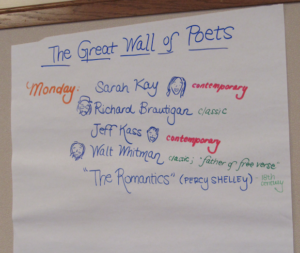 The Great Wall of Poets
Monday: Sarah Kay contemporary
Richard Brautigan classic
Jeff Kass contemporary
Walt Whitman classic; "father of free verse"
"The Romantics" (PERCY SHELLEY) - century